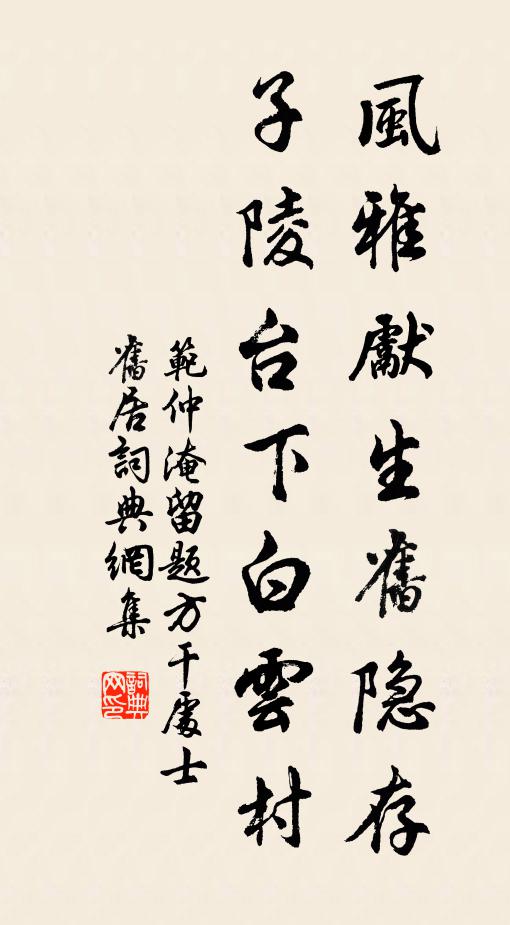 風雅獻生舊隐存
子陵台下白雲村
範仲淹留题方干處士
舊居詞典網集
詞典
网印